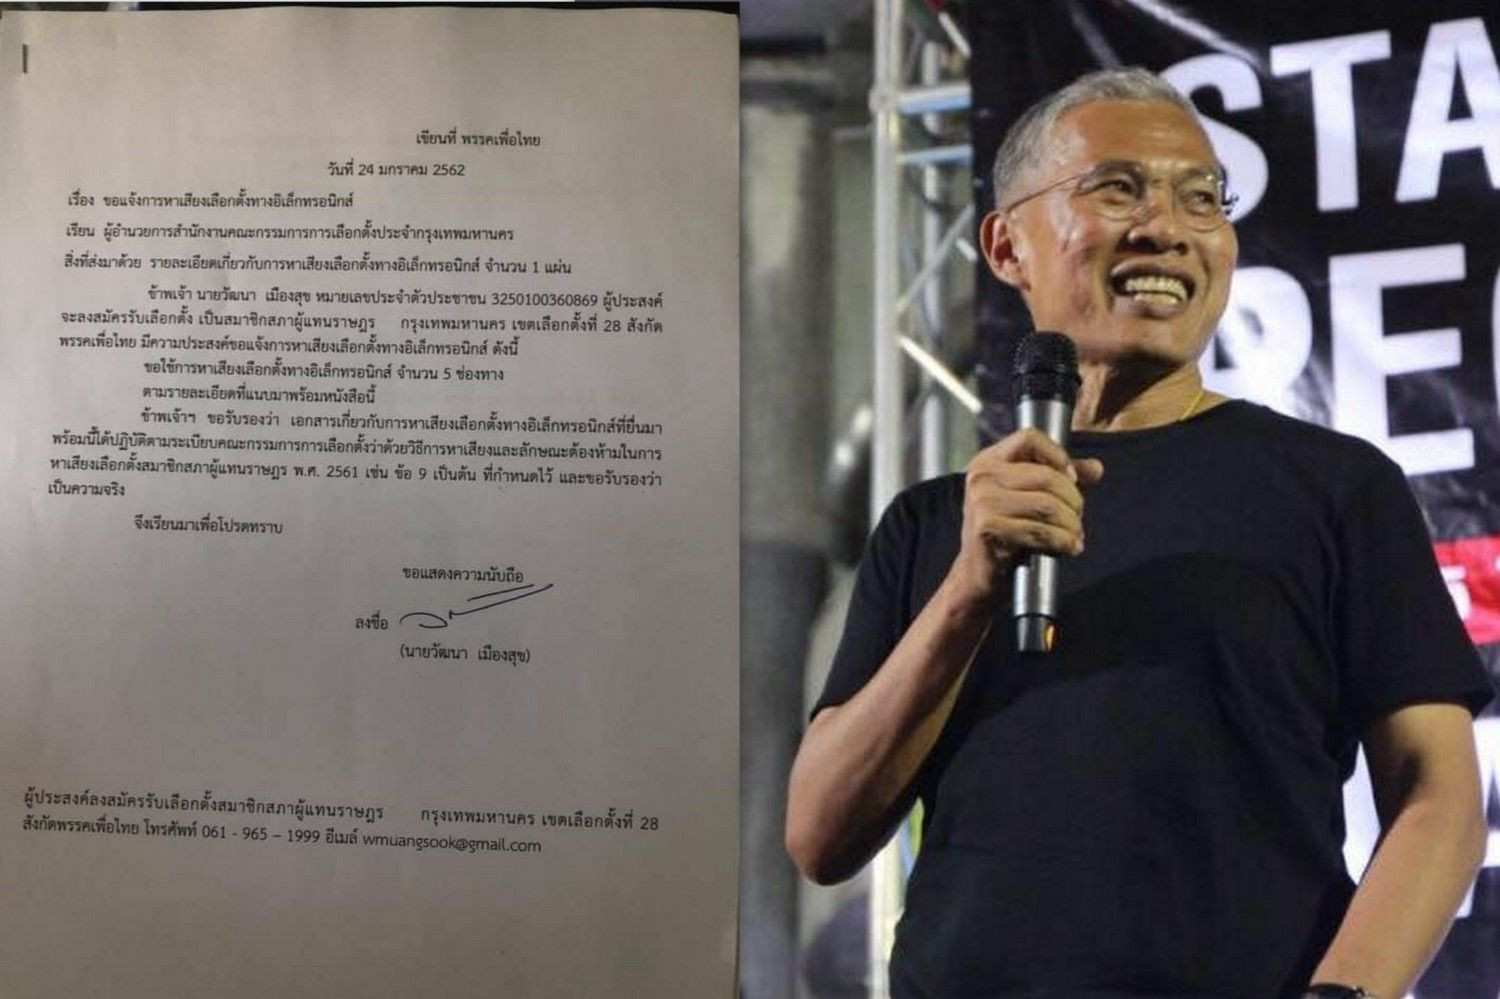 เขียนที่ พรรคเพื่อไทย
วันที่ 24 มกราคม 2562
เรื่อง ขอแจ้งการหาเสียงเลือกตั้งทางอิเล็กทรอนิกส์
เรียน ผู้อำนวยการสำนักงานคณะกรรมการการเลือกตั้งประจำกรุงเทพมหานคร
สิ่งที่ส่งมาด้วย รายละเอียดเกี่ยวกับการหาเสียงเลือกตั้งทางอิเล็กทรอนิกส์ จำนวน 1 แผ่น
ข้าพเจ้า นายวัฒนา เมืองสุข หมายเลขประจำตัวประชาชน 3250100360869 ผู้ประสงค์
จะลงสมัครรับเลือกตั้ง เป็นสมาชิกสภาผู้แทนราษฎร กรุงเทพมหานคร เขตเลือกตั้งที่ 28 สังกัด
พรรคเพื่อไทย มีความประสงค์ขอแจ้งการหาเสียงเลือกตั้งทางอิเล็กทรอนิกส์ ดังนี้
ขอใช้การหาเสียงเลือกตั้งทางอิเล็กทรอนิกส์ จำนวน 5 ช่องทาง
ตามรายละเอียดที่แนบมาพร้อมหนังสือนี้
ข้าพเจ้าฯ ขอรับรองว่า เอกสารเกี่ยวกับการหาเสียงเลือกตั้งทางอิเล็กทรอนิกส์ที่ยื่นมา
พร้อมนี้ได้ปฏิบัติตามระเบียบคณะกรรมการการเลือกตั้งว่าด้วยวิธีการหาเสียงและลักษณะต้องห้ามในการ
หาเสียงเลือกตั้งสมาชิกสภาผู้แทนราษฎร พ.ศ. 2561 เช่น ข้อ 9 เป็นต้น ที่กำหนดไว้ และขอรับรองว่า
เป็นความจริง
จึงเรียนมาเพื่อโปรดทราบ
ขอแสดงความนับถือ
ลงชื่อ
(นายวัฒนา เมืองสุข)
ผู้ประสงค์ลงสมัครรับเลือกตั้งสมาชิกสภาผู้แทนราษฎร กรุงเทพมหานคร เขตเลือกตั้งที่ 28
สังกัดพรรคเพื่อไทย โทรศัพท์ 061 - 965 – 1999 อีเมล์ wmuangsook@gmail.com
STA